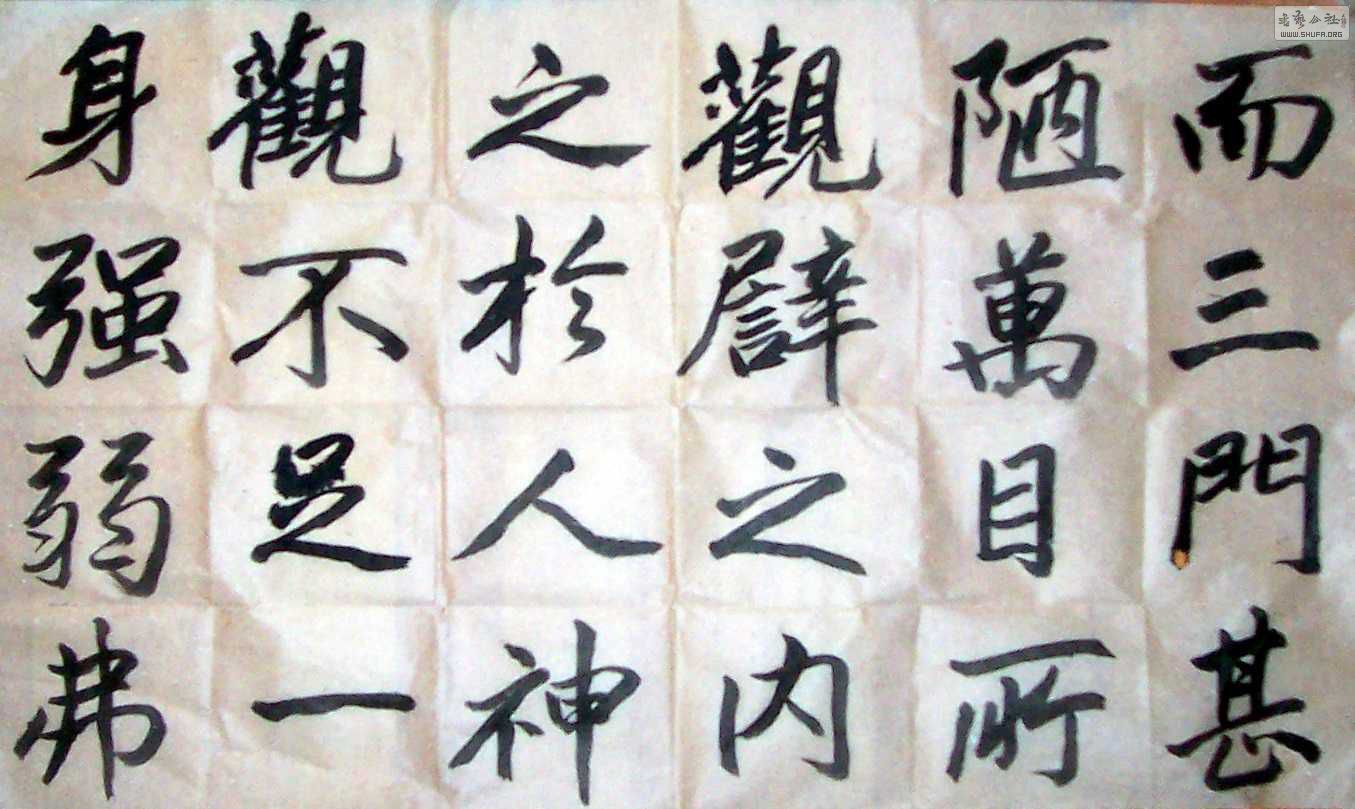 而三門甚
陋萬目所
觀譬之内
之於人神
觀不足一
身强弱弗
書藝公社
WWW.SHUFA.ORG